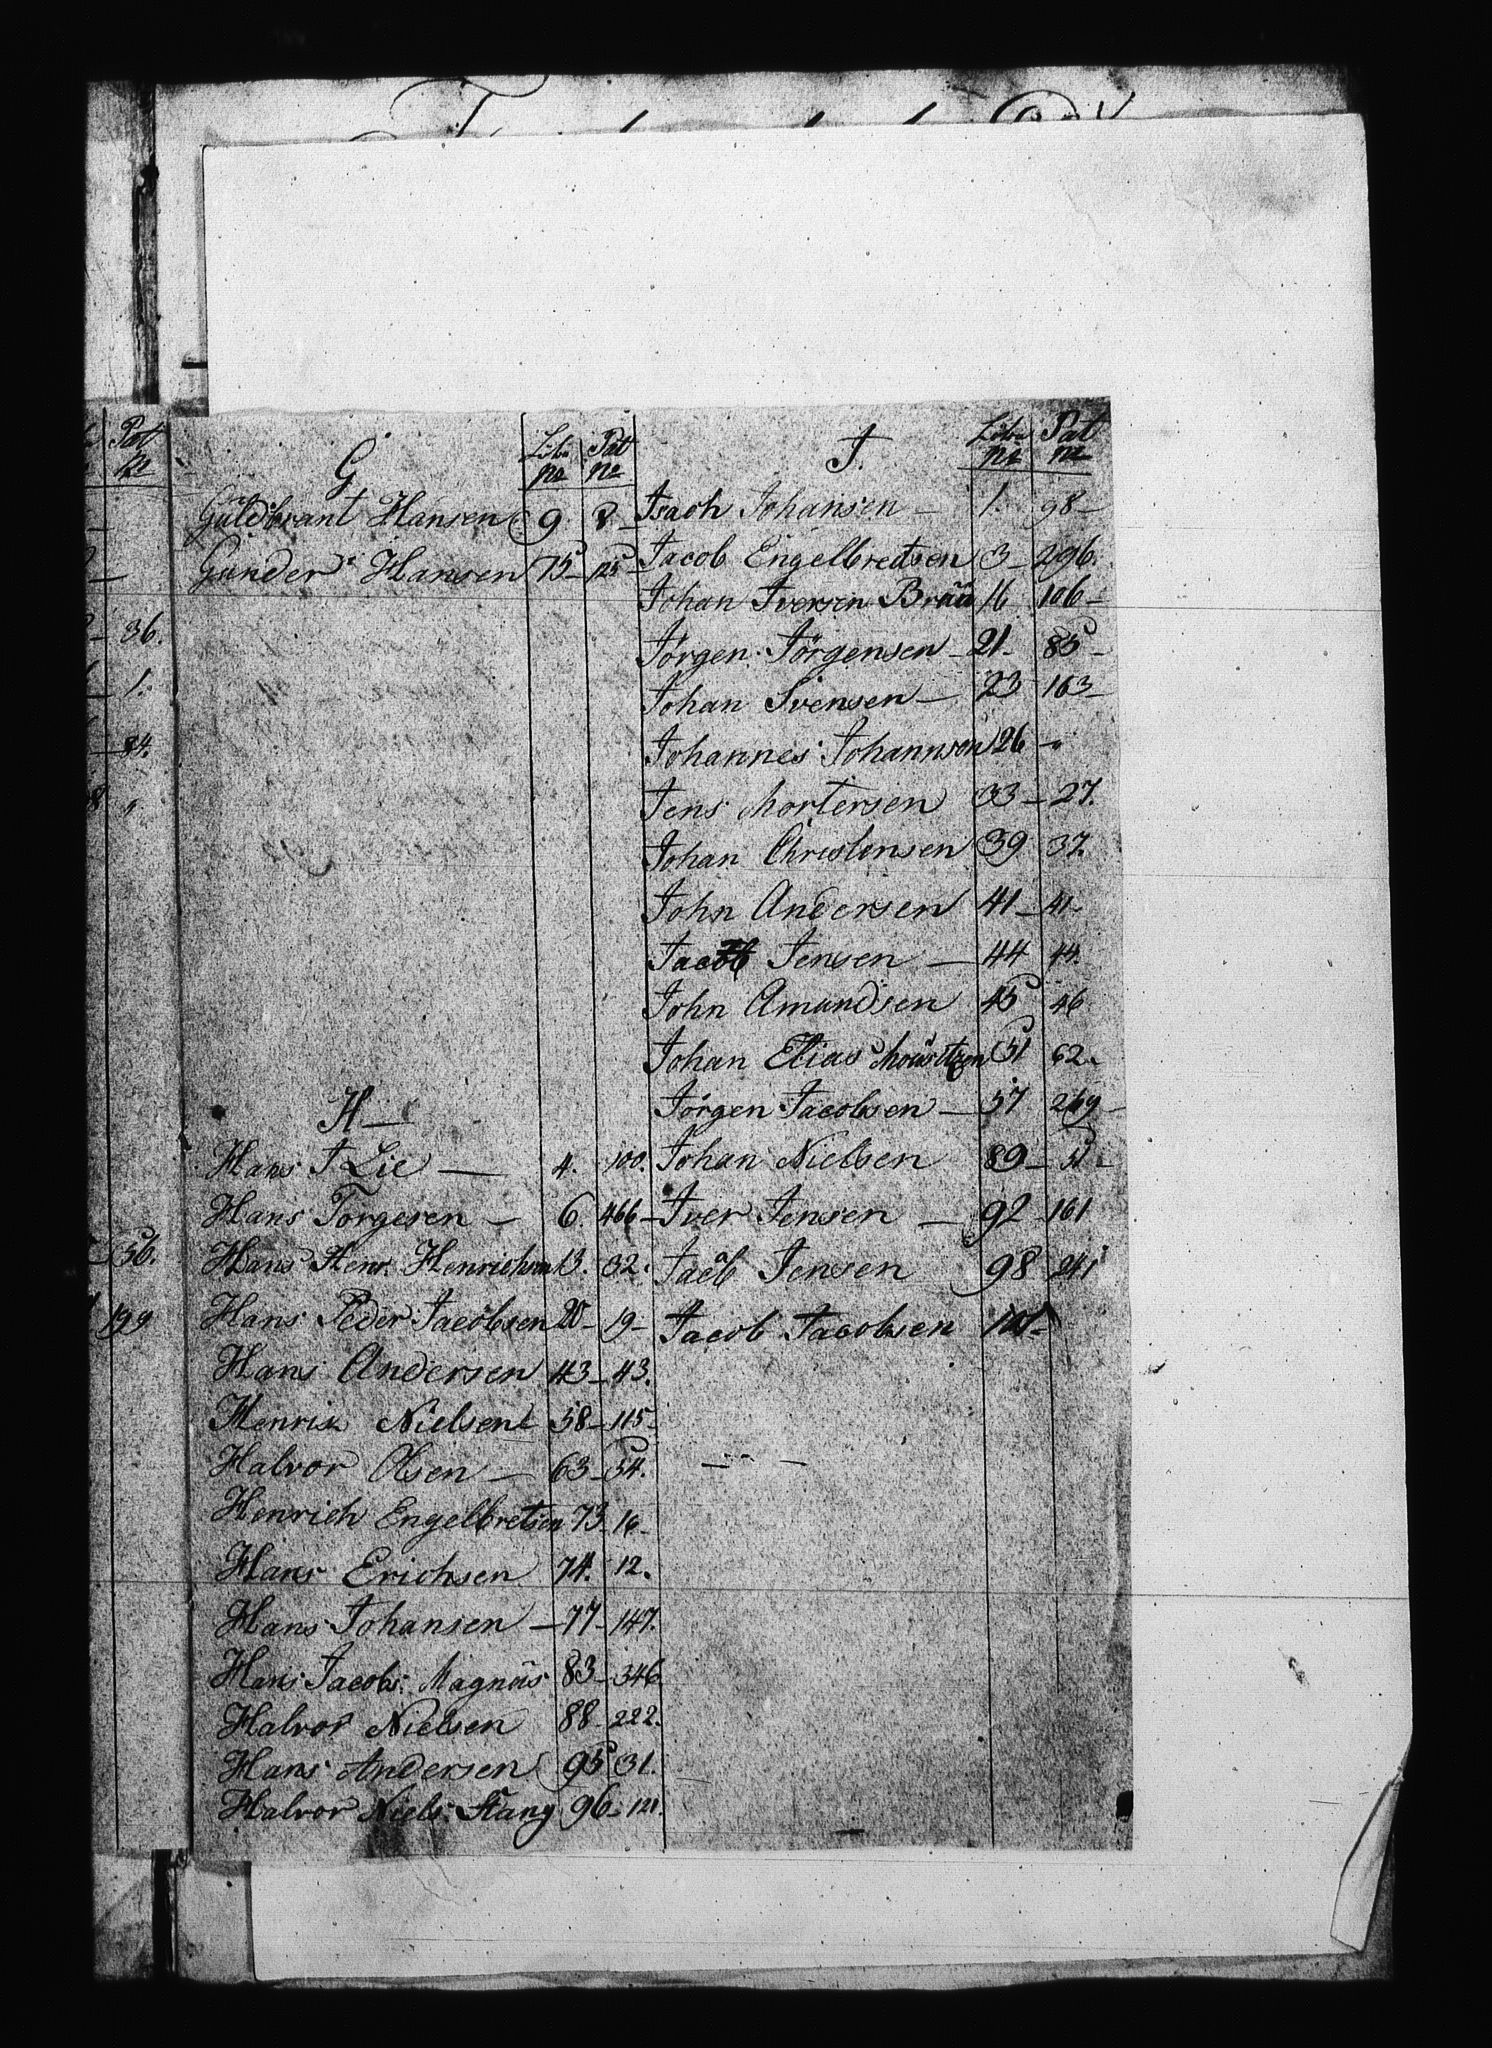 Pat
No
36.
1.
84.
8 "
56.
199
G
Løbe No
Pat No
Guldbrant Hansen 9 8 -
Gunder Hansen 75 - 125 -
H -
Hans J Lie - 4. 100.
Hans Torgesen - 6. 466 -
Hans Henr. Henrichsen 13. 32.
Hans Peder Jacobsen 20 - 19 -
Hans Andersen 43 - 43.
Henrik Nielsen 58 - 115 -
Halvor Olsen - 63 - 54.
Henrich Engelbretsen 73 - 16 -
Hans Erichsen 74. 12.
Hans Johansen - 77 - 147.
Hans Jacobs. Magnüs 83 - 346.
Halvor Nielsen 88 - 222.
Hans Andersen 95 31.
Halvor Niels. Stang 96 - 121.
J.
Løbe No
Pat No
Isach Johansen - 1. 98 -
Jacob Engelbredtsen 3 - 296.
Johan Iversen Bråa 16 106 -
Jørgen Jørgensen - 21 - 85 -
Johan Svensen - 23 163 -
Johannes Johannsen 26 - "
Jens Mortensen 33 - 27.
Johan Christensen 39 37.
John Andersen 41 - 41 -
Jacob Jensen - 44 44.
John Amundsen 45 46
Johan Elias Mouritzen 51 62 -
Jørgen Jacobsen - 57 269 -
Johan Nielsen 89 - 51 -
Iver Jensen - 92 - 161
Jacob Jensen 98 241
Jacob Jacobsen 101 -